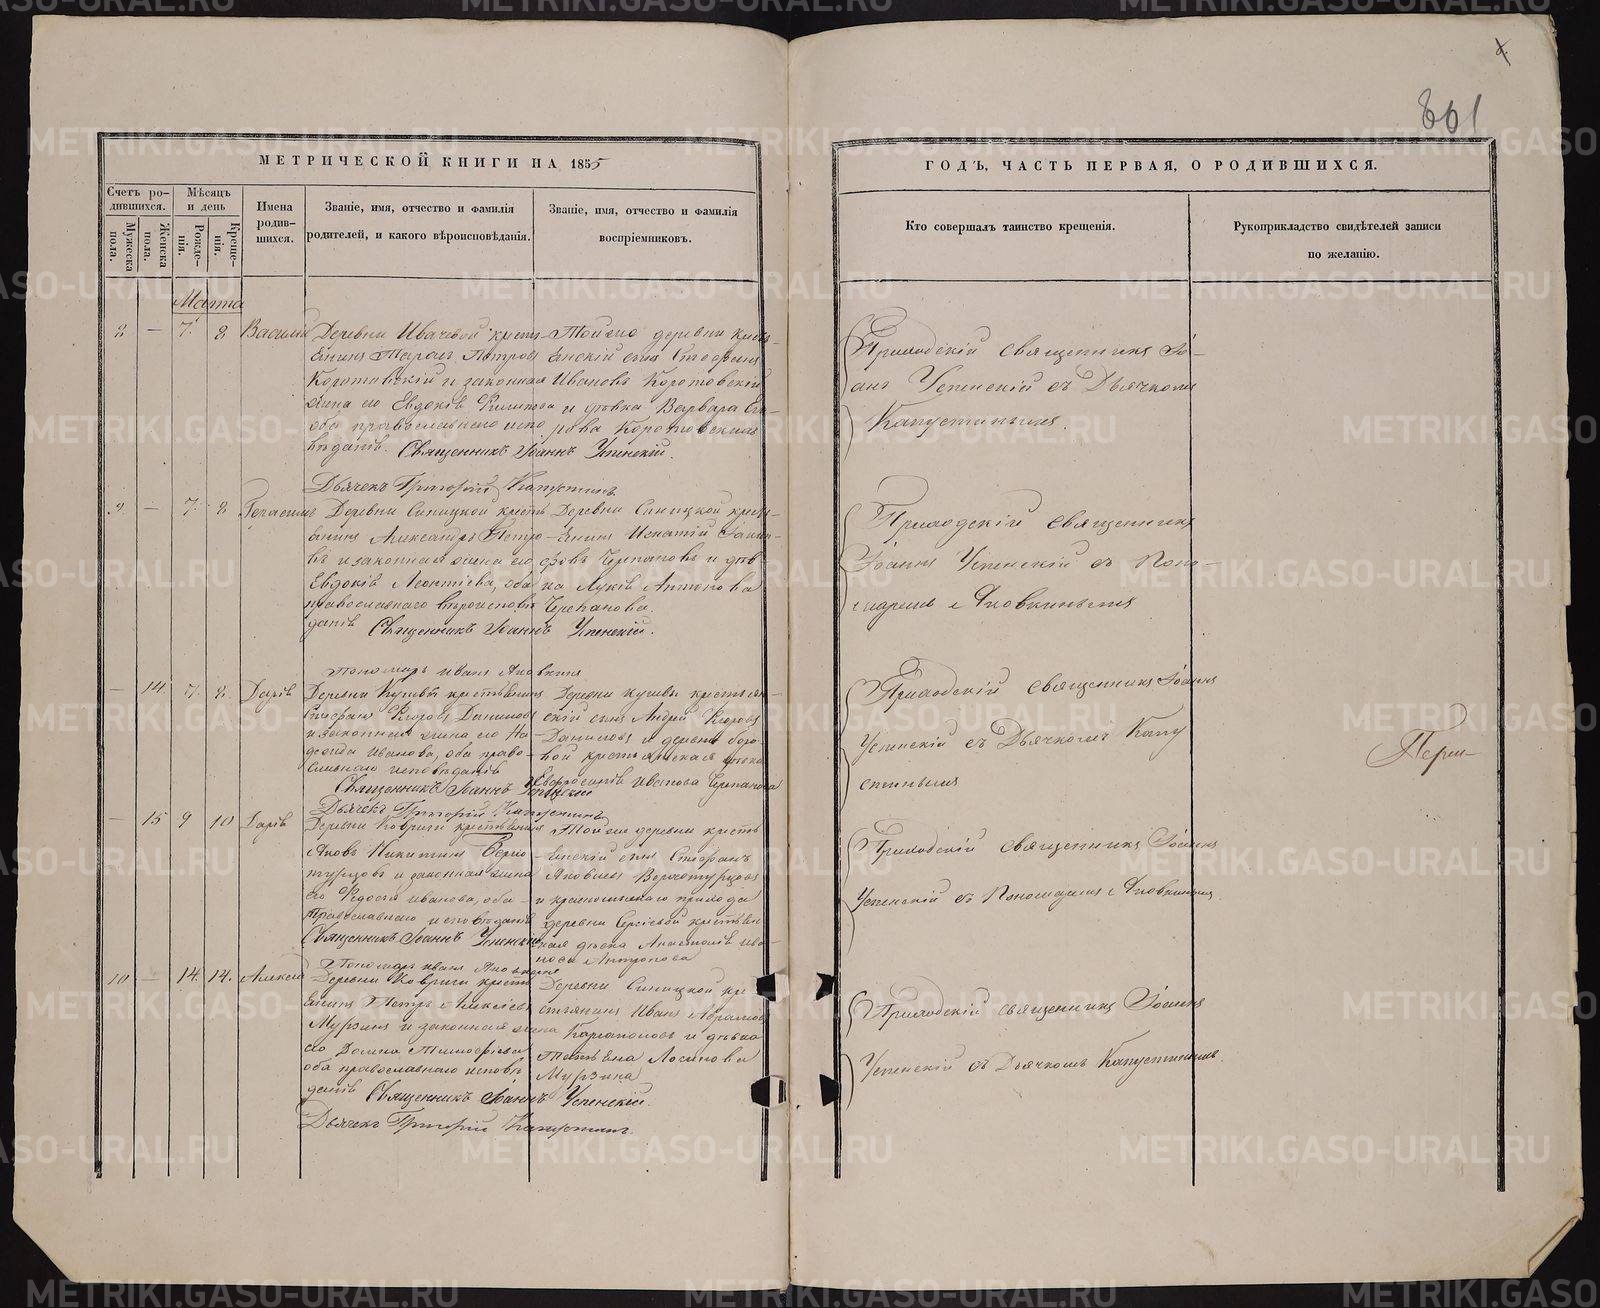 861
МЕТРИЧЕСКОЙ КНИГИ НА 1855
Счетъ ро-
дившихся.
Мужеска
пола.
Женска
пола.
Мѣсяцъ
и день
Рожде-
нія.
Креще-
нія.
Имена
родив-
шихся.
Званіе, имя, отчество и фамилія
родителей, и какого вѣроисповѣданія.
Званіе, имя, отчество и фамилія
воспріемниковъ.
Марта
8 — 7. 8 Василій
Деревни крест-
Петровъ
Коротовскій и законная
жена его Евдокія Филипова
оба православнаго испо
вѣданія. Священникъ Іоаннъ Успенскій.
Дьячекъ Григорій Капустинъ.
Той же деревни крест-
янскій сынъ Стефанъ
Ивановъ Коротовскій
и дѣвка Варвара
Коротовская
9. — 7. 8 Герасимъ
Деревни Синицкой кресть
янинъ Александръ Петро-
въ и законная жена его
Евдокія Леонтіева, оба
православнаго вѣроисповѣ
данія Священникъ Іоаннъ Успенскій.
Пономарь Иванъ Яковкинъ
Деревни Синицкой крест-
янинъ Игнатій
Черпановъ и дѣв
ка Антонова
Черпанова.
— 14. 7. 8. Дарія
Деревни крестьянинъ
Стефанъ Федоровъ Даниловъ
и законная жена его На-
дежда Иванова, оба право-
славнаго исповѣданія
Священникъ Іоаннъ Успенскій
Дьячекъ Григорій Капустинъ
Деревни крестьян-
скій сынъ Андрей Федоровъ
Даниловъ и деревни
крестьянская дѣвка
Иванова Черпанова
— 15 9 10 Дарія
Деревни Ковриги крестьянинъ
Яковъ Никитинъ Верхо-
турцовъ и законная жена
его Федосья Иванова, оба
Православнаго исповѣданія
Священникъ Іоаннъ Успенскій
Пономарь Иванъ Яковкинъ
Той же деревни кресть
янскій сынъ Стефанъ
Яковлевъ Верхотурцовъ
и прихода
деревни крестьян
ская дѣвка Анастасія Ива-
нова Антропова
10 — 14. 14. Алексѣй
Деревни Ковриги кресть
янинъ Петръ Алексѣевъ
Мурзинъ и законная жена
его Домна Тимофѣева
оба православнаго исповѣ
данія Священникъ Іоаннъ Успенскій.
Дьячекъ Григорій Капустинъ.
Деревни Синицкой кре-
стьянинъ Иванъ Абрамовъ
и дѣвка
Татьяна
Мурзина
ГОДЪ, ЧАСТЬ ПЕРВАЯ, О РОДИВШИХСЯ.
Кто совершалъ таинство крещенія.
Рукоприкладство свидѣтелей записи
по желанію.
Приходскій священникъ Іо-
анъ Успенскій съ Дьячкомъ
Капустинымъ.
Приходскій священникъ
Іоаннъ Успенскій съ Поно-
маремъ Яковкинымъ
Приходскій священникъ Іоаннъ
Успенскій съ Дьячкомъ Капу
стинымъ
Перм-
Приходскій священникъ Іоаннъ
Успенскій съ Пономаремъ Яковкинымъ.
Приходскій священникъ Іоаннъ
Успенскій съ Дьячкомъ Капустинымъ.
METRIKI.GASO-URAL.RU